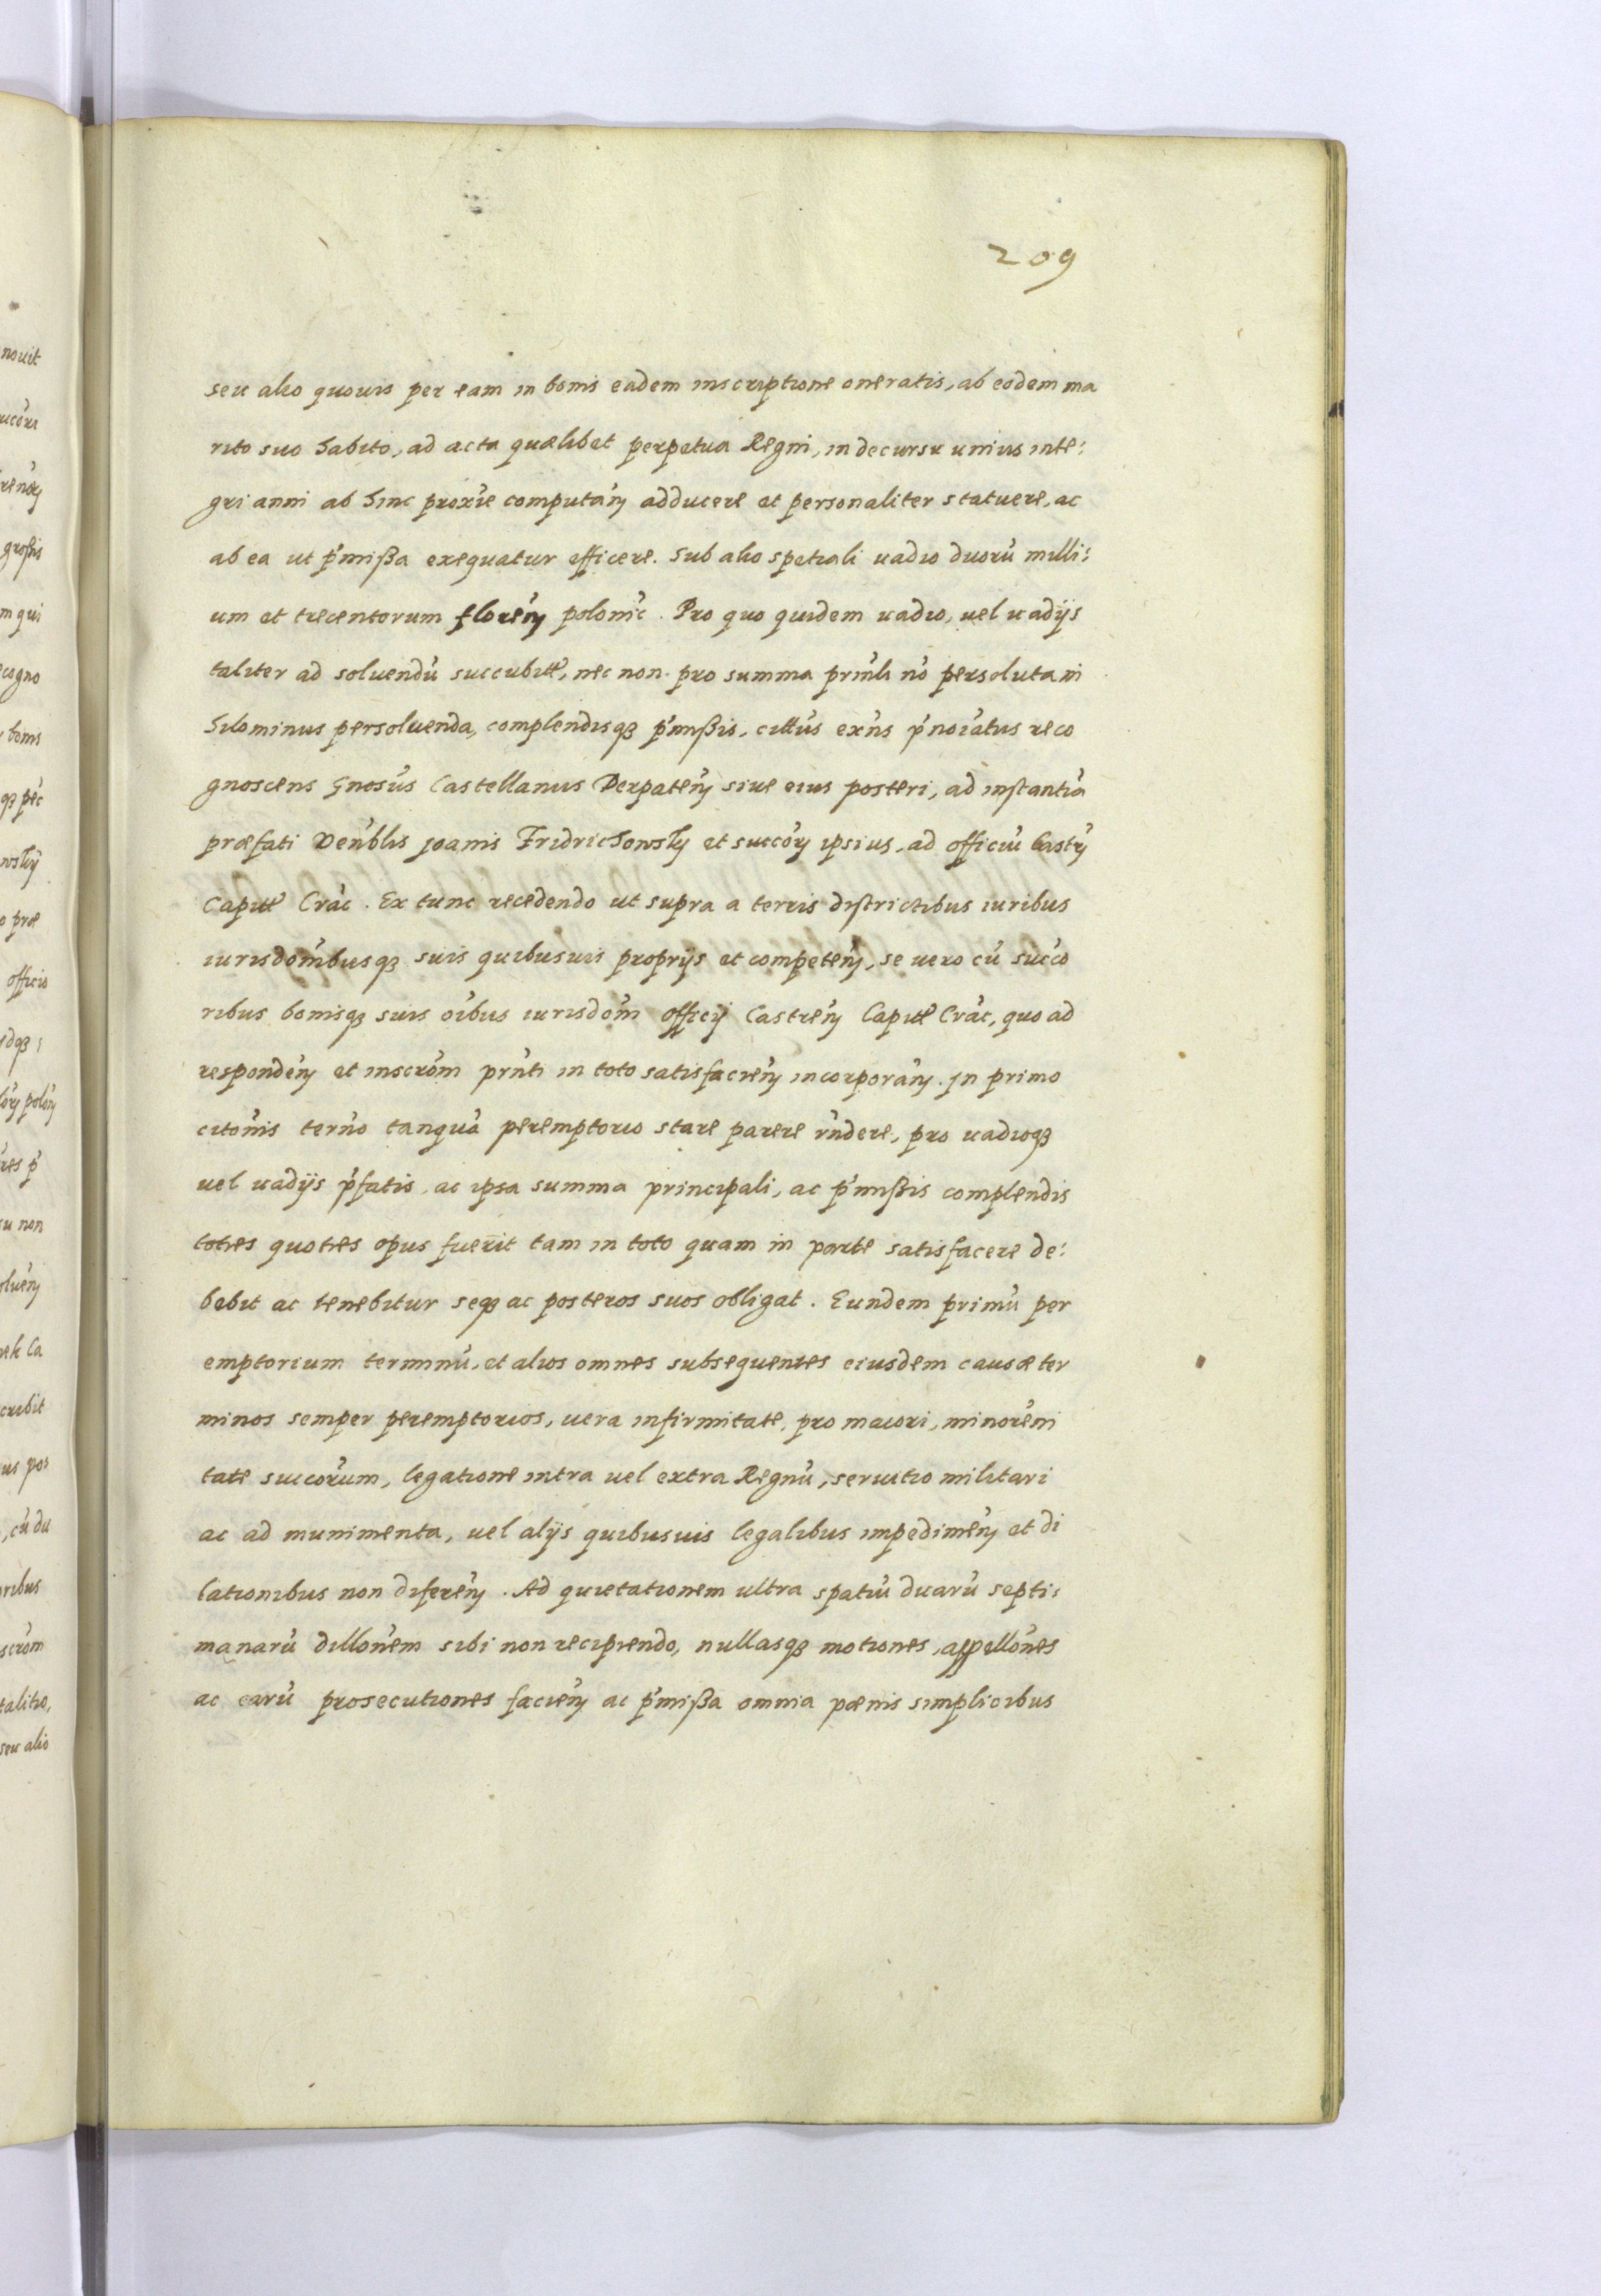 209
seu alio quouis per eam in bonis eadem inscriptione oneratis, ab eodem ma
rito suo habito, ad acta quælibet perpetua Regni, in decursu unius inte:
gri anni ab hinc proxie computań adducere et personaliter statuere, ac
ab ea ut p'mißa exequatur efficere. Sub alio spetiali uadio duorú milli:
um et trecentorum floreń polonić. Pro quo quidem uadio, uel uadijs
taliter ad soluendú succubitt, nec non pro summa prinĺi nó persoluta ni
hilominus persoluenda, complendisq3 p'mißis, cittús exńs p'noiátus reco
gnoscens Gnosús Castellanus Derpateń siue eius posteri, ad instantiá
præfati Venb́lis Joanis Fridrichowsky et succoŕ ipsius, ad officiú Castŕ
Capitt Crać. Ex tunc recedendo ut supra a terris districtibus iuribus
iurisdom̂busq3 suis quibusuis proprijs et competeń, se uero cú succ̔o
ribus bonisq3 suis oíbus iurisdoḿ officij Castreń Capitt Crać, quo ad
respondeń et inscroḿ prńti in toto satisfacień incorporań. Jn primo
citońis terńo tanquá peremptorio stare parere rńdere, pro uadioq3
uel uadijs p'fatis, ac ipsa summa principali, ac p'mißis complendis
toties quoties opus fuerit tam in toto quam in parte satisfacere de:
bebit ac tenebitur seq3 ac posteros suos obligat. Eundem primú per
emptorium terminú, et alios omnes subsequentes eiusdem causæ ter
minos semper peremptorios, uera infirmitate, pro maiori, minoreńi
tate succorúm, legatione intra uel extra Regnú, seruitio militari
ac ad munimenta, uel alijs quibusuis legalibus impedimeń et di
lationibus non difereń. Ad quietationem ultra spatiú duarú septi:
manarú dillońem sibi non recipiendo, nullasq3 motiones, appellońes
ac earú prosecutiones facień ac p'mißa omnia pænis simplicibus